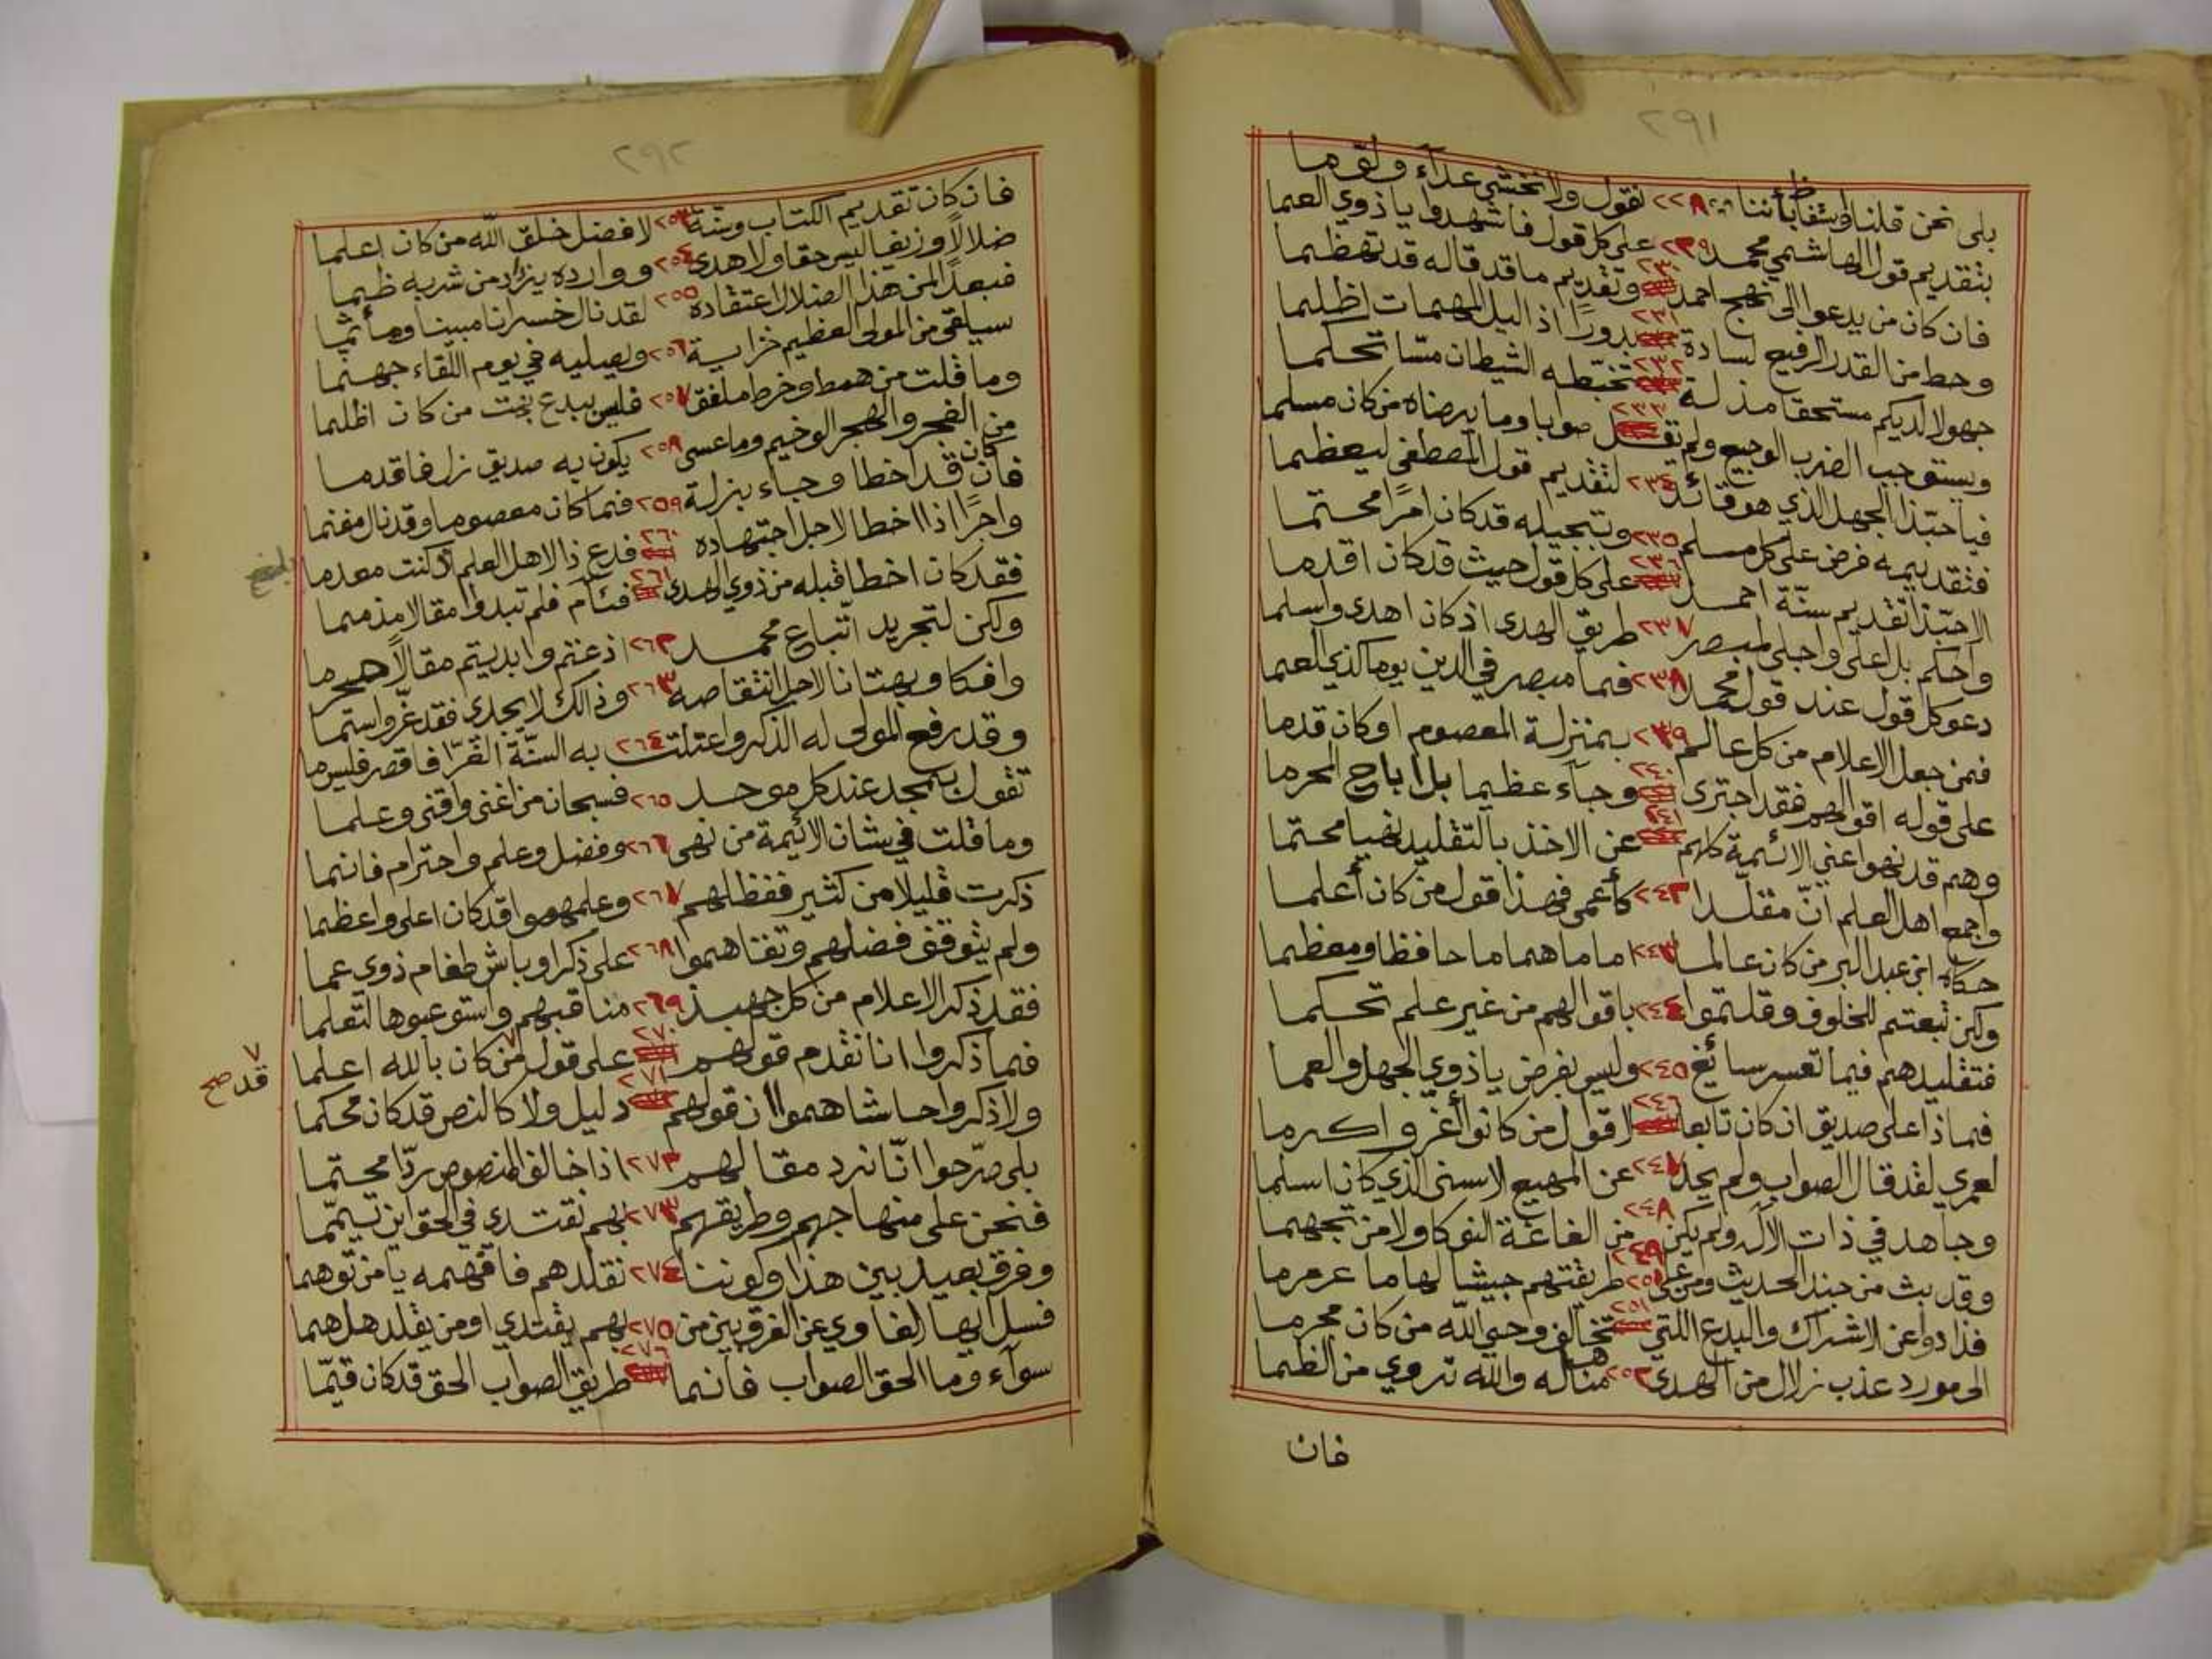 ٢٩١
بلى نحن قلنا ٢٢٨ نقول ولا نخشى عداء ولوّما
بتقديم قول الهاشمي محمد ٢٢٩ على كل قول فاشهدوا يا ذوي العما
فان كان من يدعوا الى نهج احمد ٢٣٠ وتقديم ما قد قاله قد تهظما
وحط من القدر الرفيع لسادة ٢٣١ بدورًا اذ اليل المهمات اظلما
جهولا لديكم مستحقا مذلة ٢٣٢ تخبّطه الشيطان مسّا تحكما
ويستوجب الضرب الوجيع ولم تقل ٢٣٣ صوبا وما يرضاه من كان مسلما
فيا حبّذا الجهل الذي هو قائد ٢٣٤ لتقديم قول المصطفى ليعظما
فتقديمه فرض على كل مسلم ٢٣٥ وتبجيله قد كان امرًا محتما
الا حبّذا تقديم سنّة احمد ٢٣٦ على كل قول حيث قد كان اقدما
واحكم بل اعلى واجلى لمبصر ٢٣٧ طريق الهدى اذ كان اهدى واسلما
دعو كل قول عند قول محمد ٢٣٨ فما مبصر في الدين يوما كذي العما
فمن جعل الاعلام من كل عالم ٢٣٩ بمنزلة المعصوم او كان قدما
على قوله اقوالهم فقد اجترى ٢٤٠ وجاء عظيما بل اباح المحرما
وهم قد نهوا عني الائمة كلهم ٢٤١ عن الاخذ بالتقليد نهيا محتما
واجمع اهل العلم انّ مقلّدا ٢٤٢ كأعمى فهذا قول من كان أعلما
حكاه ابن عبد البر من كان عالما ٢٤٣ اماما هماما حافظا ومعظما
ولكن تبعتم للخلوف وقلتموا ٢٤٤ باقوالهم من غير علم تحكما
فتقليدهم فيما تعسر سائغ ٢٤٥ وليس بفرض يا ذوي الجهل والعما
فماذا على صديق ان كان تابعا ٢٤٦ لاقوال من كانوا أغر واكرما
لعمري لقد قال الصواب ولم يحد ٢٤٧ عن المهيع الاسنى الذي كان اسلما
وجاهد في ذات الاله ولم يكن ٢٤٨ من الغاغة النوكا ولا من تجهما
وقد بث من جند الحديث ومن على ٢٤٩ طريقتهم جيشا لهاما عرمرما
فذادوا عن الاشراك والبدع اللتي ٢٥١ تخالف وحي الله من كان مجرما
الى مورد عذب زلال من الهدى ٢٥٢ مناهله والله تروي من الظما
فان
٢٩٢
فان كان تقديم الكتاب وسنّة ٢٥٣ لافضل خلق الله من كان اعلما
ضلالاً وزيغا ليس حقا ولا هدى ٢٥٤ ووارده يزداد من شربه ظما
فبعدًا لمن هذا الضلال اعتقاده ٢٥٥ لقد نال خسرانا مبينا ومأثما
سيلقى من المولى العظيم خزاية ٢٥٦ ويصليه في يوم اللقاء جهنما
وما قلت من همط وخرط ملفق ٢٥٧ فليس ببدع بحت من كان اظلما
من الفجر والهجر الوخيم وما عسى ٢٥٨ يكون به صديق زل فاقدما
فان كان قد اخطا وجاء بزلة ٢٥٩ فما كان معصوما وقد نال مغنما
واجرًا اذا اخطا لاجل اجتهاده ٢٦٠ فدع ذا لاهل العلم اذ كنت معدما
فقد كان اخطا قبله من ذوي الهدى ٢٦١ فئام فلم تبدوا مقالا مذمما
ولكن لتجريد اتّباع محمد ٢٦٢ اذعتم وابديتم مقالاً محرما
وافكا وبهتانا لاجل انتقاصه ٢٦٣ وذالك لا يجدي فقد عزّ واستما
وقد رفع المولى له الذكر واعتلت ٢٦٤ به السنّة الغرّا فاقصر فليس ما
تقول بمجد عند كل موحد ٢٦٥ فسبحان من اغنى واقنى وعلما
وما قلت في شان الائيمة من نهى ٢٦٦ وفضل وعلم واحترام فانما
ذكرت قليلا من كثير ففظلهم ٢٦٧ وعلمهموا قد كان اعلى واعظما
ولم يتوقف فضلهم وتقاهموا ٢٦٨ على ذكر اوباش طغام ذوي عما
فقد ذكر الاعلام من كل جهبذ ٢٦٩ مناقبهم واستوعبوها لتعلما
فما ذكروا انا نقدم قولهم ٢٧٠ على قول من ٧ كان بالله اعلما
٧ قد صح
ولا ذكروا حاشاهموا ان قولهم ٢٧١ دليل ولا كالنص قد كان محكما
بلى صرّحوا انّا نرد مقالهم ٢٧٢ اذا خالف المنصوص ردّا محتما
فنحن على منهاجهم وطريقهم ٢٧٣ بهم نقتدي في الحق اين تيمّما
وفرق بعيد بين هذا وكوننا ٢٧٤ نقلدهم فافهمه يا من توهما
فسل ايها الغاوي عن الفرق بين من ٢٧٥ بهم يقتدي او من يقلد هل هما
سوآء وما الحق الصواب فانما ٢٧٦ طريق الصواب الحق قد كان قيّما